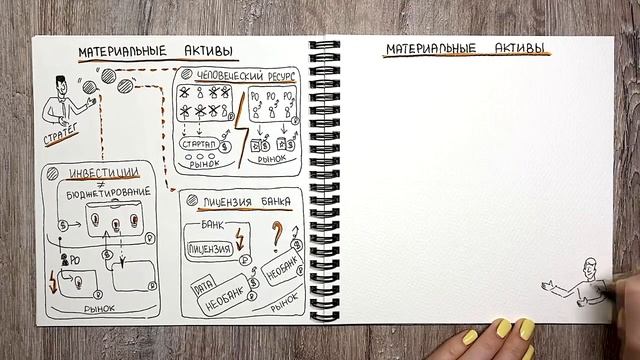 МАТЕРИАЛЬНЫЕ АКТИВЫ
СТРАТЕГ
ЧЕЛОВЕЧЕСКИЙ РЕСУРС
РО РО РО
СТАРТАП
РЫНОК
РЫНОК
ИНВЕСТИЦИИ
≠
БЮДЖЕТИРОВАНИЕ
РО
РЫНОК
ЛИЦЕНЗИЯ БАНКА
БАНК
ЛИЦЕНЗИЯ
?
DATA
НЕОБАНК
НЕОБАНК
РЫНОК
МАТЕРИАЛЬНЫЕ АКТИВЫ